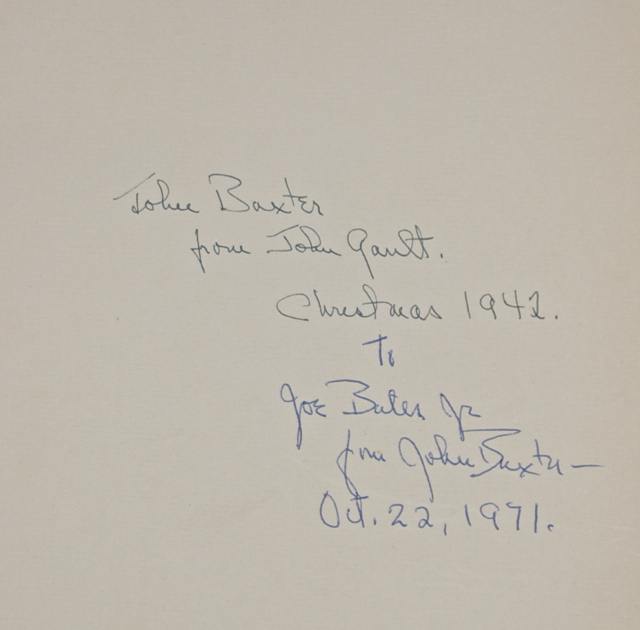 John Baxter
from John Gault.
Christmas 1942.
To
Joe Bates Jr
from John Baxter—
Oct. 22, 1971.